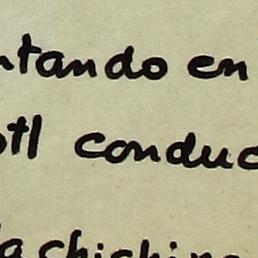 ntando en
otl conduc
la chichime